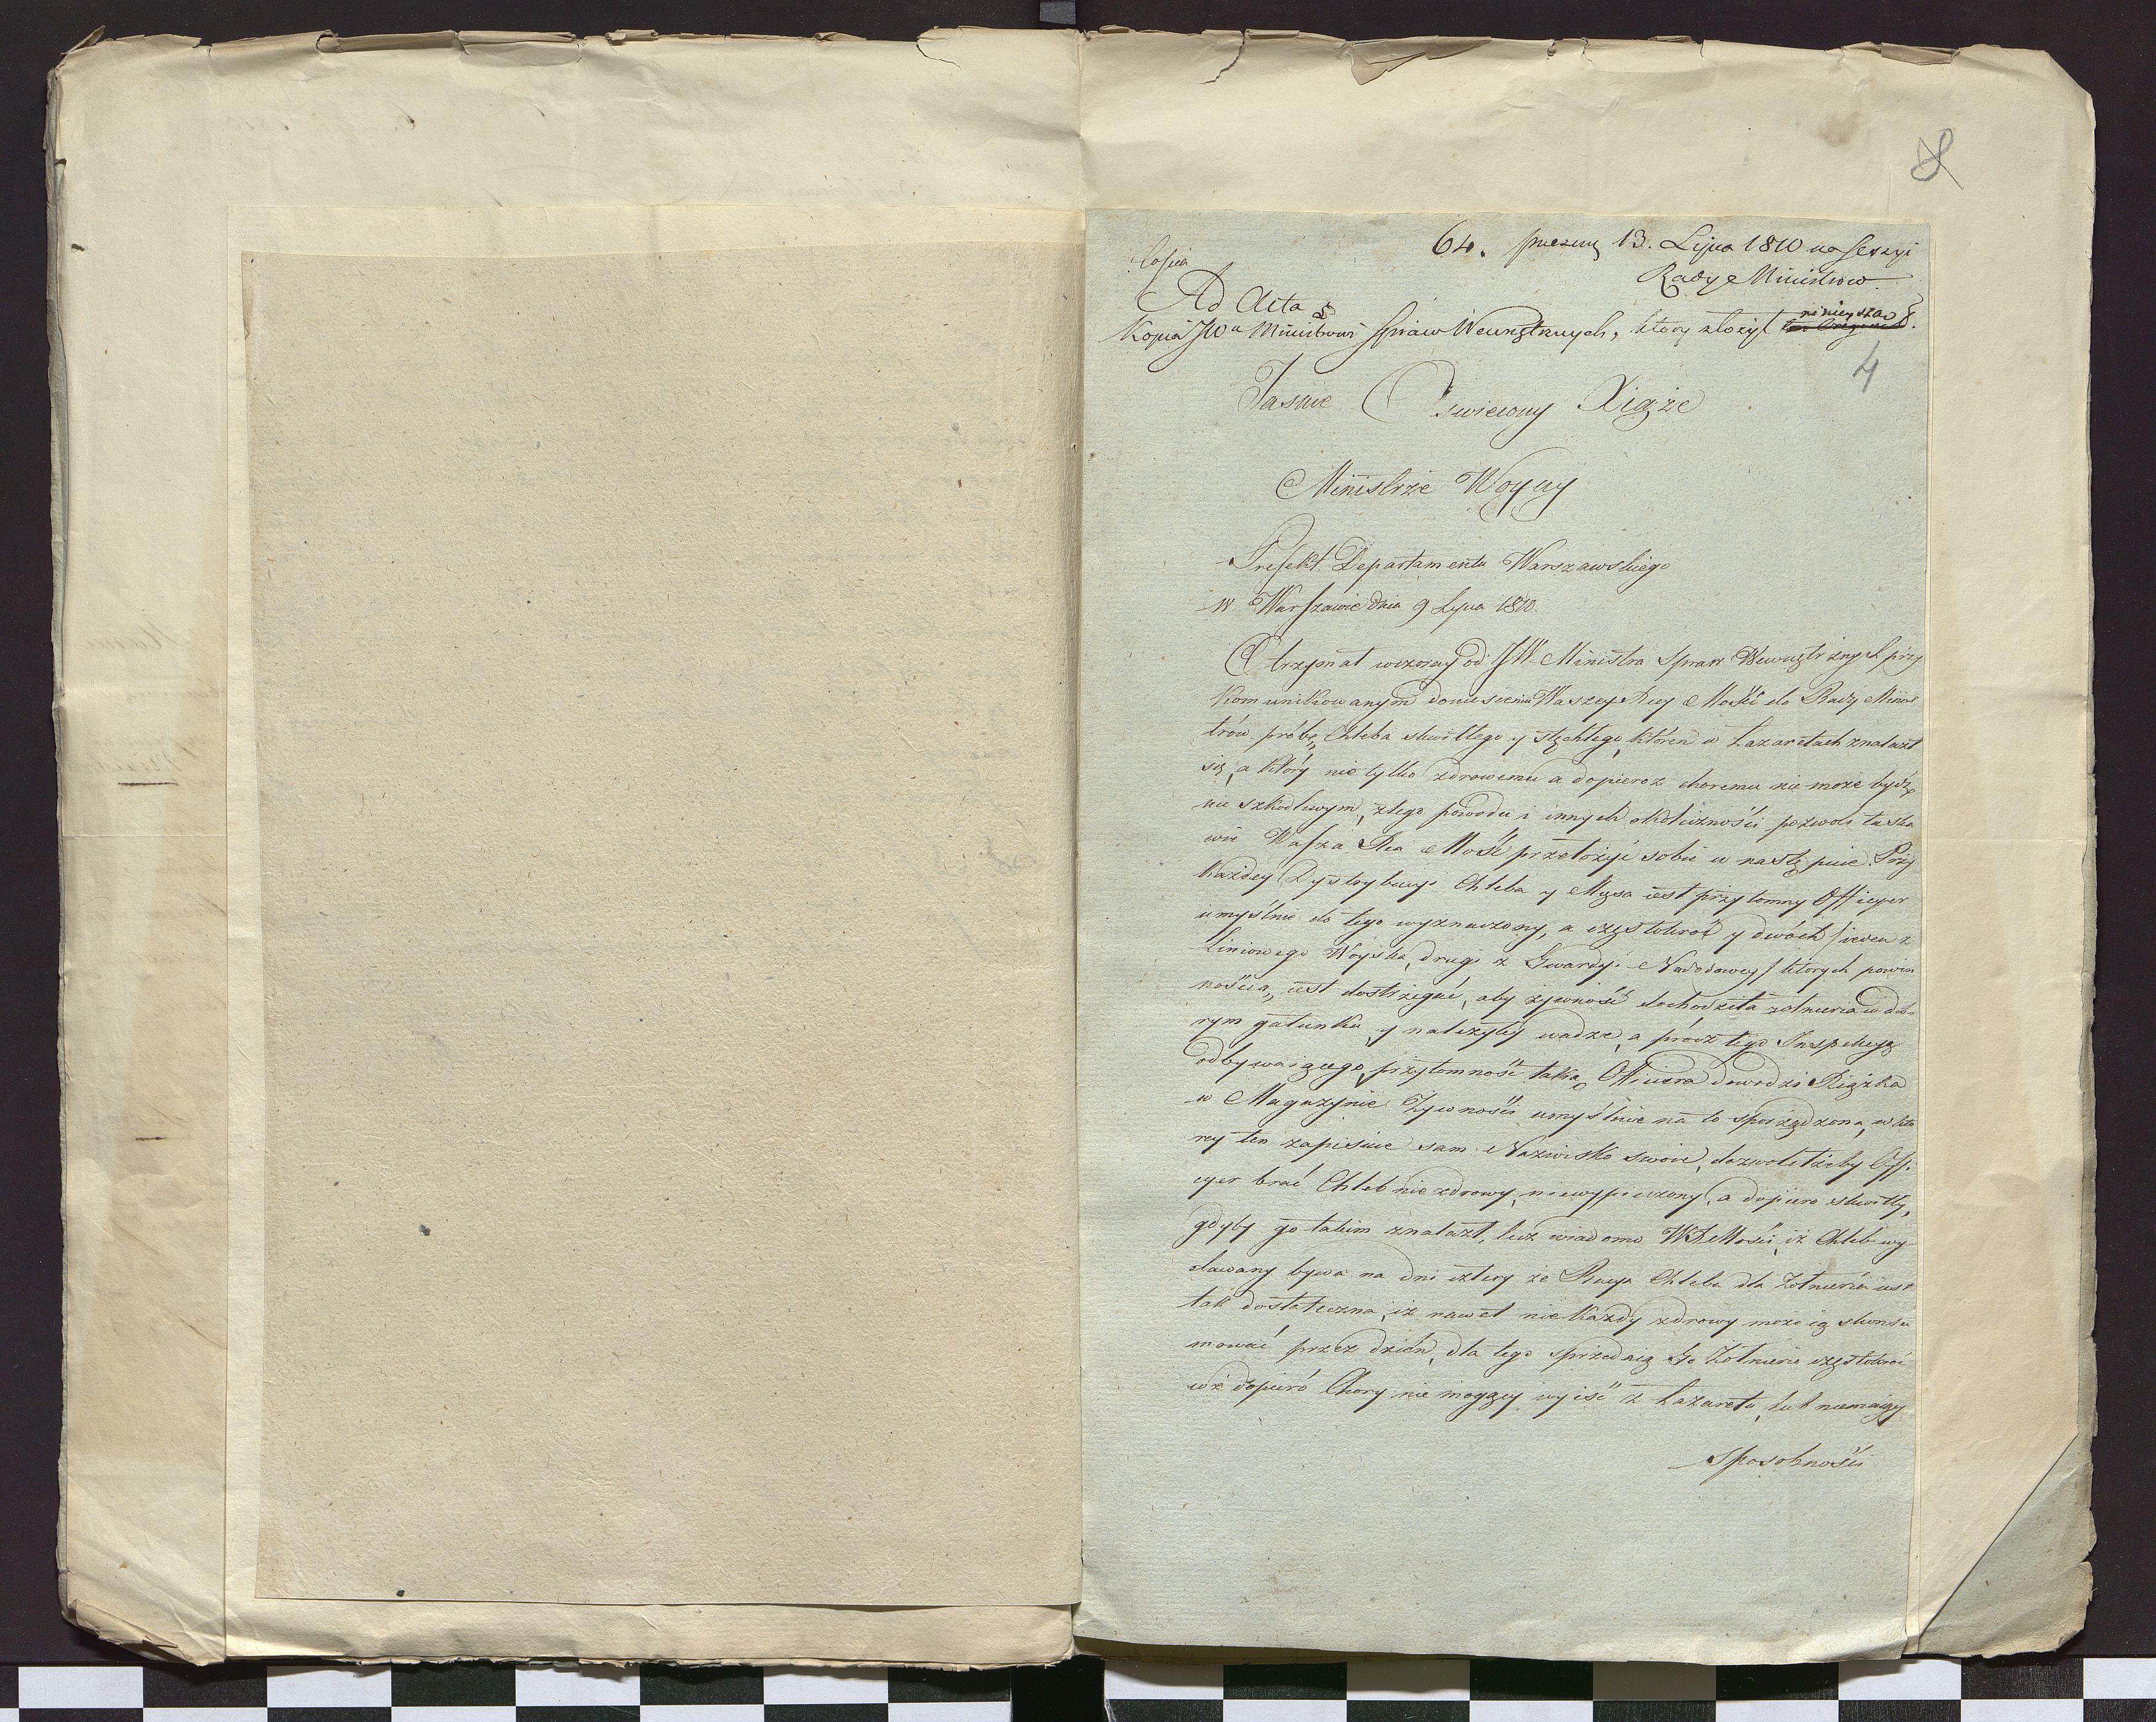 8
64. prezen 13. Lipca 1810 na Sessyi
Rady Ministrow
Copia
Ad Acta
Kopia JWu Ministrowi Spraw Wewnętrznych, ktory złożył ninieysza
4
Jasnie Oswiecony Xiąże
Ministrze Woyny
Prefekt Departamentu Warszawskiego
w Warszawie dnia 9 Lipca 1810.
Otrzymał wczoray od JW Ministra Spraw Wewnętrznych przy
komunikowanym doniesieniu Waszey Xcey Mości do Rady Minis
trów próbę Chleba skwitłego y stęchłego, któren w Lazaretach znalazł
się, a który nie tylko zdrowemu a dopieroż choremu nie może bydź
nie szkodliwym, z tego powodu i innych okoliczności pozwoli łaska
wie Wasza Xca Mość przełożyć sobie w następnie. Przy
każdey Dystrybucyi Chleba y Mięsa iest przytomny Officyer
umyślnie do tego wyznaczony, a częstokroć y dwóch /ieden z
Liniowego Woyska, drugi z Gwardyi Narodowey/ których powin
nością iest dostrzegać, aby żywność dochodziła żołnierza w dob-
rym gatunku y należytey wadze, a prócz tego Inspekcyą
odbywaiącego, przytomność taką Officiera dowodzi Xiążka
w Magazynie Żywności umyślnie na to sporządzona, w któ
rey ten zapisuie sam Nazwisko swoie, dozwoliłżeby Offi
cyer brać Chleb niezdrowy, niewypieczony, a dopiero skwitły,
gdyby go takim znalazł, lecz wiadomo WXMości, iż Chleb wy
dawany bywa na dni cztery że Racya Chleba dla Żołnierza iest
tak dostateczna, iż nawet nie każdy zdrowy może ią skonsu
mować przez dzień, dla tego sprzedaią Go Żołnierze częstokroć
cóż dopiero Chory nie mogący wyiść z Lazaretu, lub niemaiący
Sposobności